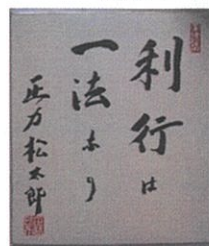 利行は
一法なり
正力松太郎